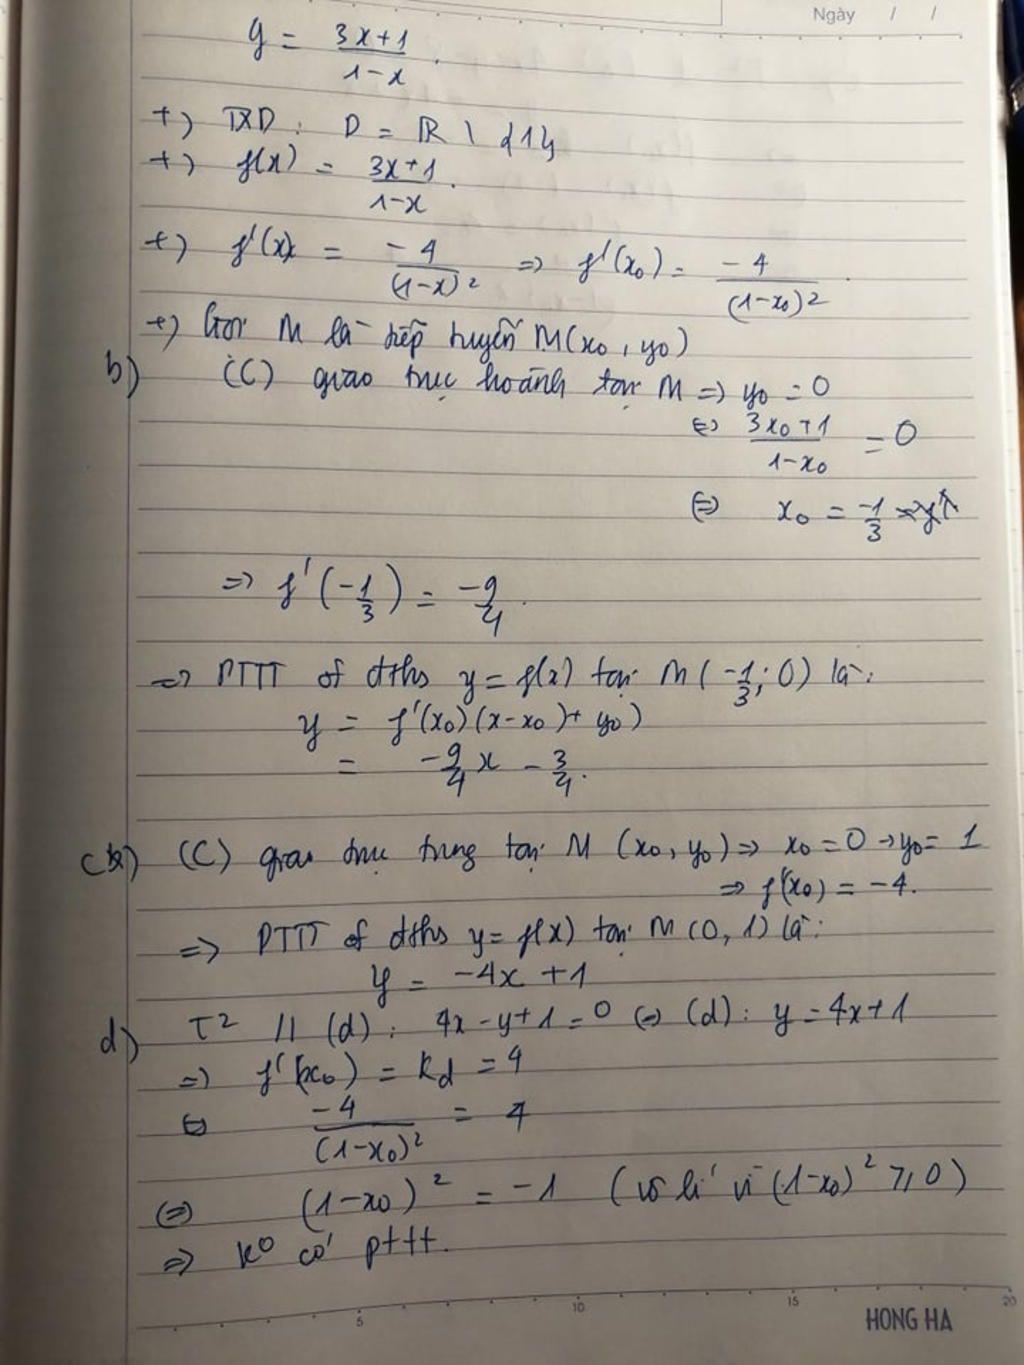 Ngày / /
y = \frac{3x+1}{1-x}.
+) TXD: D = R \ {1}
+) f(x) = \frac{3x+1}{1-x}.
+) f'(x) = \frac{-4}{(1-x)^2} => f'(x_0) = \frac{-4}{(1-x_0)^2}.
+) Gọi M là tiếp tuyến M(x_0, y_0)
b) (C) giao trục hoành tại M => y_0 = 0
<=> \frac{3x_0+1}{1-x_0} = 0
<=> x_0 = \frac{-1}{3}
=> f'(-\frac{1}{3}) = \frac{-9}{4}.
=> PTTT of đths y = f(x) tại M(-\frac{1}{3}; 0) là:
y = f'(x_0)(x-x_0)+ y_0)
= -\frac{9}{4}x - \frac{3}{4}.
c) (C) giao trục tung tại M (x_0, y_0) => x_0 = 0 → y_0 = 1
=> f'(x_0) = -4.
=> PTTT of đths y = f(x) tại M(0, 1) là:
y = -4x + 1
d) T² // (d): 4x - y + 1 = 0 <=> (d): y = 4x + 1
=> f'(x_0) = k_d = 4
<=> \frac{-4}{(1-x_0)^2} = 4
<=> (1-x_0)^2 = -1 (vô lí vì (1-x_0)^2 ≥ 0)
=> k° có pttt.
5 10 15 20
HONG HA